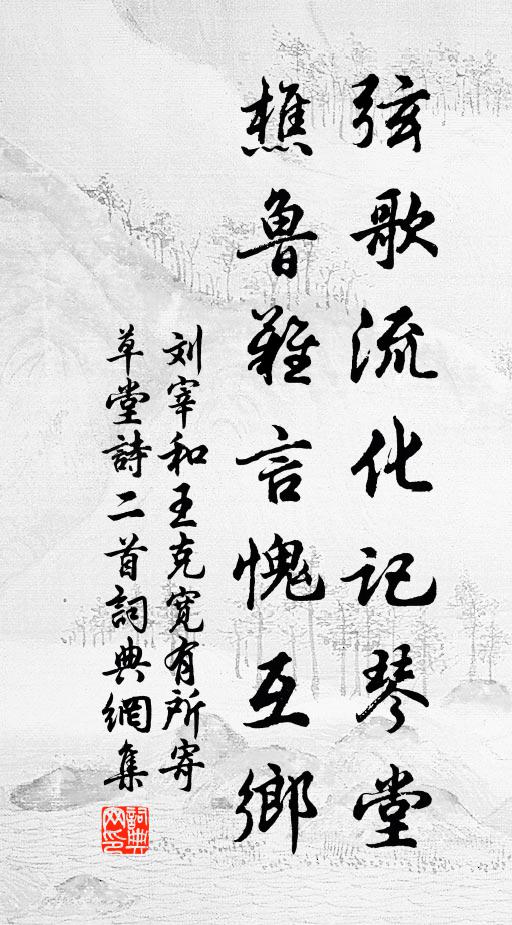 弦歌流化记琴堂
樵鲁难言愧互鄉
刘宰和王克宽有所寄
草堂詩二首詞典網集
詞典網印